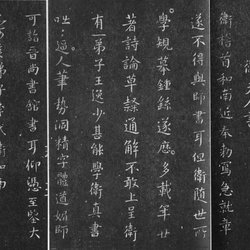 衛稽首和南近奉勅寫急就章
遂不得與師書耳但衛隨世所
學規摹鍾繇遂歷多載年廿
著詩論草隸通解不敢上呈衛
有一弟子王逸少甚能學衛真書
咄〻逼人筆勢洞精字體遒媚師
可詣晉尚書館書耳仰憑至鑒大